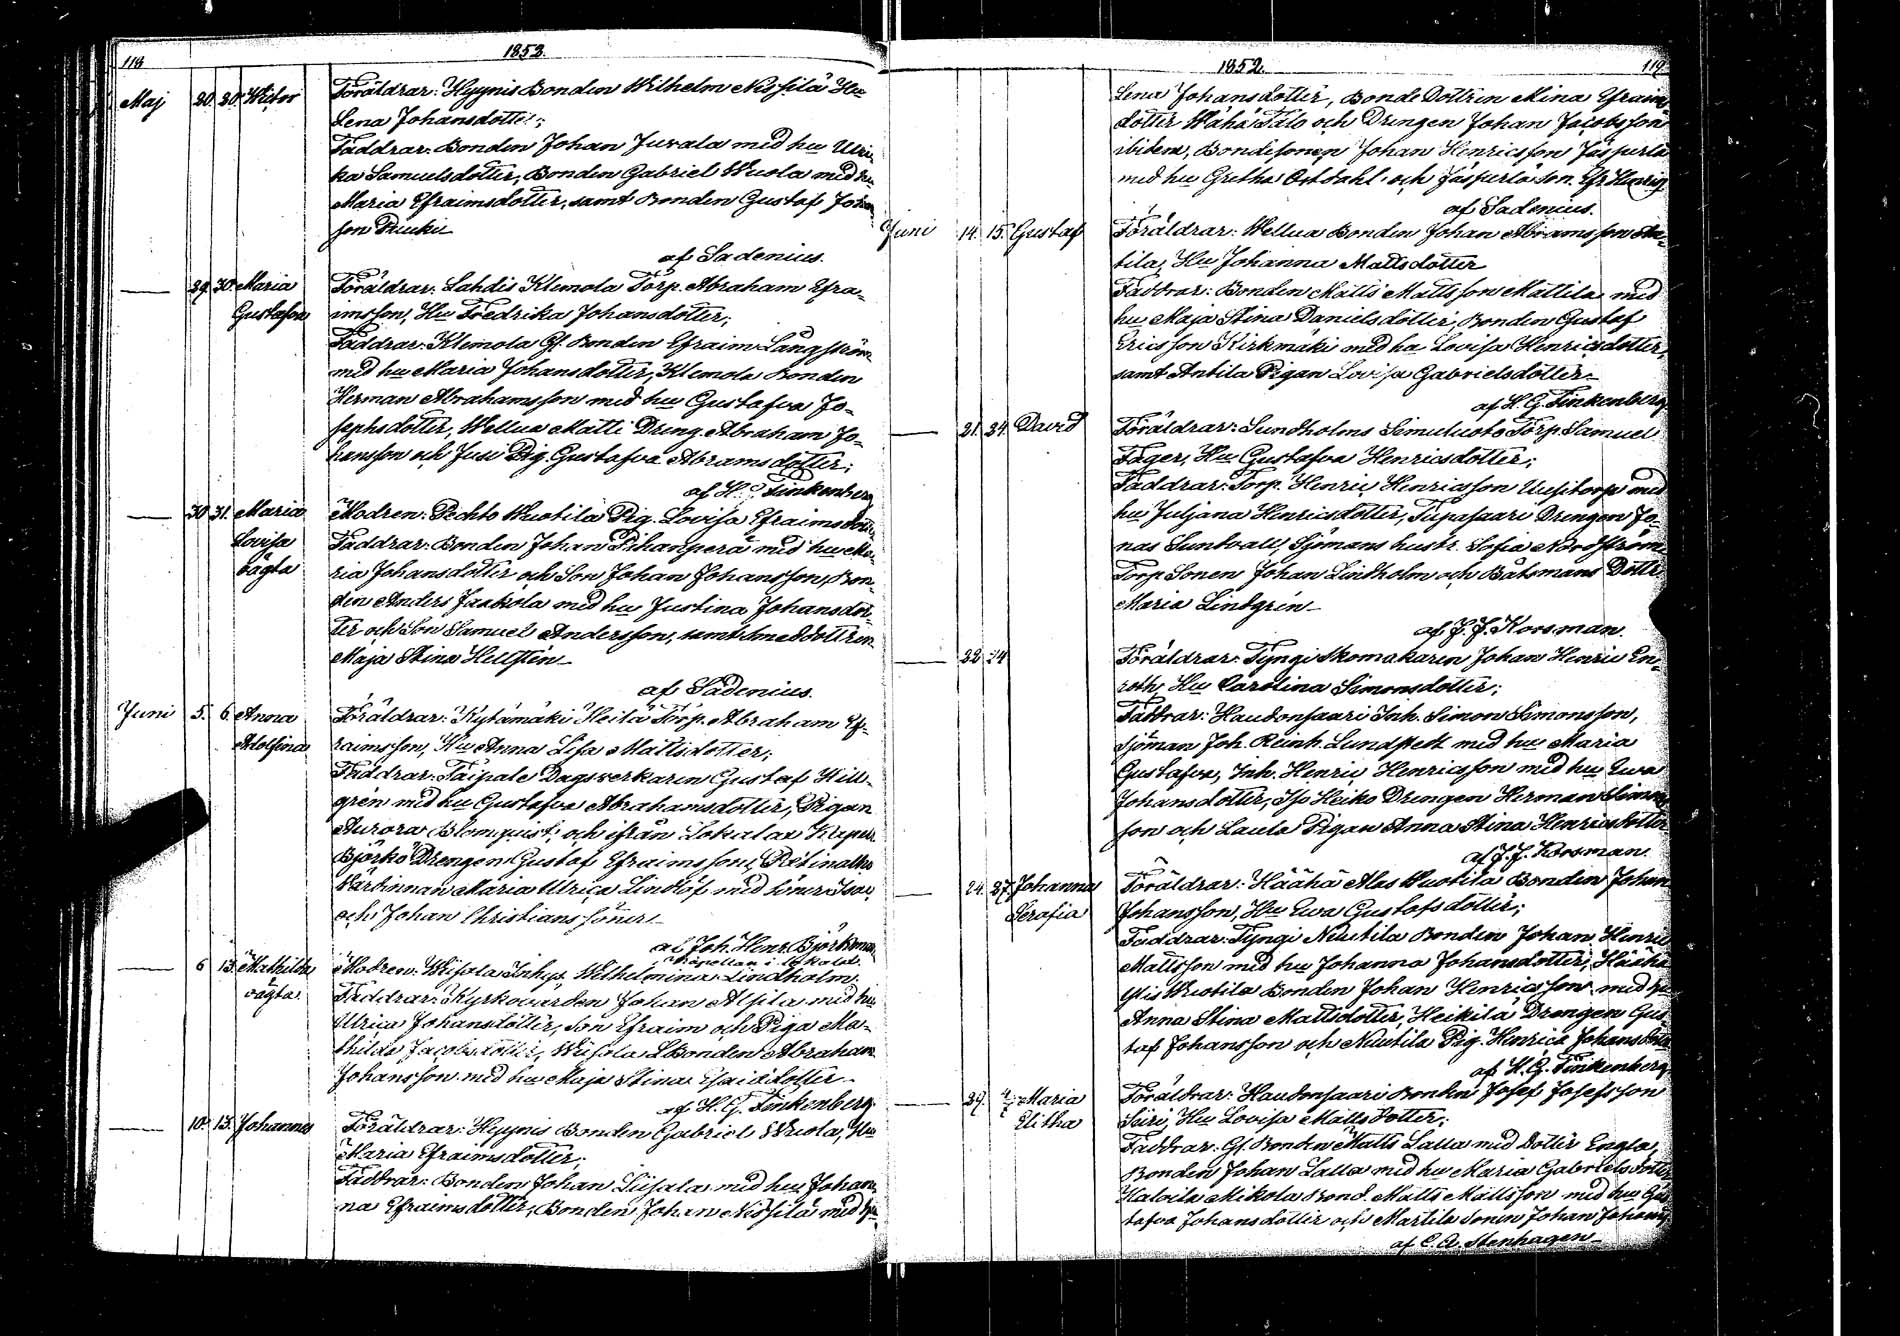 118
1853.
Maj 20. 20. Wictor Föräldrar: Hyynis Bonden Wilhelm Nissilä Hu
Lena Johansdotter;
Faddrar: Bonden Johan Juvala med hu Ulri-
ka Samuelsdotter, Bonden Gabriel Wuola med hu
Maria Efraimsdotter, samt Bonden Gustaf Johans
son Ruuki
af Sadenius.
29. 30. Maria Föräldrar: Lahdis Klemola Torp. Abraham Efra-
Gustafson imsson, Hu Fredrika Johansdotter;
Faddrar: Klemola Gl. Bonden Efraim Långström
med hu Maria Johansdotter, Klemola Bonden
Herman Abrahamsson med hu Gustafva Jo-
sephsdotter, Wellua Matti Dreng Abraham Jo-
hansson och Jusi Pig. Gustafva Abramsdotter;
af H. G. Finkenberg
30 31. Maria Modren: Pechto Wuotila Pig. Lovisa Efraimsdotter
Lovisa Faddrar: Bonden Johan Pihanperä med hu Ma-
oägta ria Johansdotter och Son Johan Johansson, Bon-
den Anders Jaakola med hu Justina Johansdot-
ter och Son Samuel Andersson, samt Smeddottren
Maja Stina Hellstén
af Sadenius.
Juni 5. 6 Anna Föräldrar: Kytämäki Heilä Torp. Abraham Ef-
Adolfina raimsson, Hu Anna Lisa Mattsdotter;
Faddrar: Taipale Dagsverkaren Gustaf Hill-
grén med hu Gustafva Abrahamsdotter, Pigan
Aurora Blomquist, och ifrån Lokalax Kapell
Björkö Drengen Gustaf Efraimsson,
Värdinnan Maria Ulrica Lindlöf med söner Isac
och Johan Christianssöner
af Joh. Henr. Björkman
Kapellan i Lokalax.
6 13. Mathilda Modren: Wisala Inhys. Wilhelmina Lindholm.
oägta. Faddrar: Kyrkovärden Johan Alsila med hu
Ulrica Johansdotter, Son Efraim och Piga Ma-
thilda Jacobsdotter, Wisola LBonden Abraham
Johansson med hu Maja Stina Esaidotter
af H. G. Finkenberg
10. 13. Johannes Föräldrar: Hyynis Bonden Gabriel Wuola, Hu
Maria Efraimsdotter;
Faddrar: Bonden Johan Liisala med hu Johan-
na Efraimsdotter, Bonden Johan Nissilä med hu
1852.
119
Lena Johansdotter, BondeDottren Mina Efraims
dotter Wäha Talo och Drengen Johan Jacobsson
ibidem, Bondesonen Johan Henricsson Jäsperlä
med hu Gretha Ostdahl och Jäsperlä Son. Efr. Henrics.
af Sadenius.
Juni 14. 15. Gustaf Föräldrar: Wellua Bonden Johan Abramsson An-
tila, Hu Johanna Mattsdotter
Faddrar: Bonden Matts Mattsson Mattila med
hu Maja Stina Danielsdotter, Bonden Gustaf
Ericsson Kirkmäki med hu Lovisa Henricsdotter,
samt Antila Pigan Lovisa Gabrielsdotter
af H. G. Finkenberg
21. 24. David Föräldrar: Sundholms Semiluoto Torp. Samuel
Fager, Hu Gustafva Henricsdotter;
Faddrar: Torp. Henric Henricsson Uusitorp med
hu Juljana Henricsdotter, Tupasaari Drengen Jo-
nas Suntvall, Sjömans hustr. Sofia Nordström
Torp Sonen Johan Lindholm och Båtsmans Dottr.
Maria Lindgrén
af J. J. Korsman.
22 24 Föräldrar: Tyngi Skomakaren Johan Henric En-
roth, Hu Carolina Simonsdotter;
Faddrar: Haudonsaari Inh. Simon Simonsson,
Sjöman Joh. Reinh. Lundstedt med hu Maria
Gustafva, Inh. Henric Henricsson med hu Eva
Johansdotter, Iso Heiko Drengen Herman Simons
son och Laula Pigan Anna Stina Henricsdotter
af J. J. Korsman.
24. 27. Johanna Föräldrar: Häähä Alas Wuotila Bonden Johan
Serafia Johansson, Hu Ewa Gustafsdotter;
Faddrar: Tyngi Nuutila Bonden Johan Henric
Mattsson med hu Johanna Johansdotter, Häähä
Ylis Wuotila Bonden Johan Henricsson med hu
Anna Stina Mattsdotter, Heikilä Drengen Gus
taf Johansson och Nuutila Pig. Henrica Johansdotter
af H. G. Finkenberg
29. 4/7 Maria Föräldrar: Haudonsaari Bonden Josef Josefsson
Elitha Siiri, Hu Lovisa Mattsdotter;
Faddrar: Gl. Bonden Matts Lalla med dotter Engla,
Bonden Johan Lalla med hu Maria Gabrielsdotter
Mikola Bond. Matts Mattsson med hu Gus
tafva Johansdotter och Martila Sonen Johan Johans
af C. A. Stenhagen